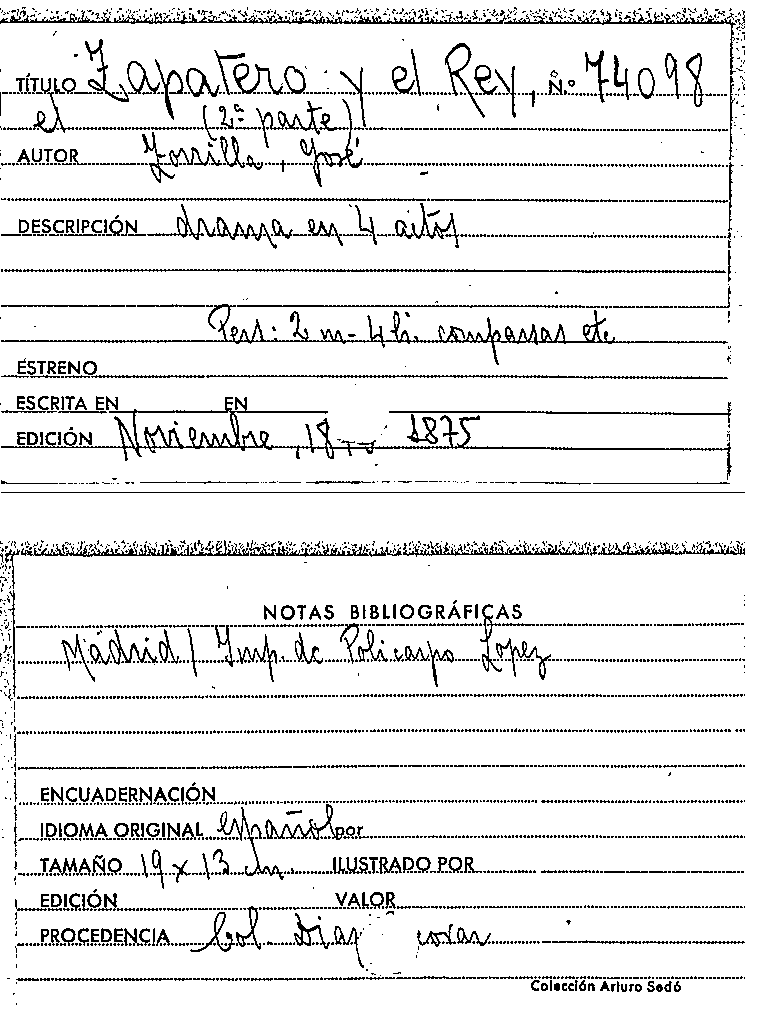 TÍTULO Zapatero y el Rey, N.º 74098
el (2ª parte)
AUTOR Zorrilla, José
DESCRIPCIÓN drama en 4 actos
Pers: 2 m - 4 h. comparsas etc
ESTRENO
ESCRITA EN EN
EDICIÓN Noviembre, 18 1875
NOTAS BIBLIOGRÁFICAS
Madrid / Imp. de Policarpo Lopez
ENCUADERNACIÓN
IDIOMA ORIGINAL español por
TAMAÑO 19 x 13 cm. ILUSTRADO POR
EDICIÓN VALOR
PROCEDENCIA Col. Diaz
Colección Arturo Sedó